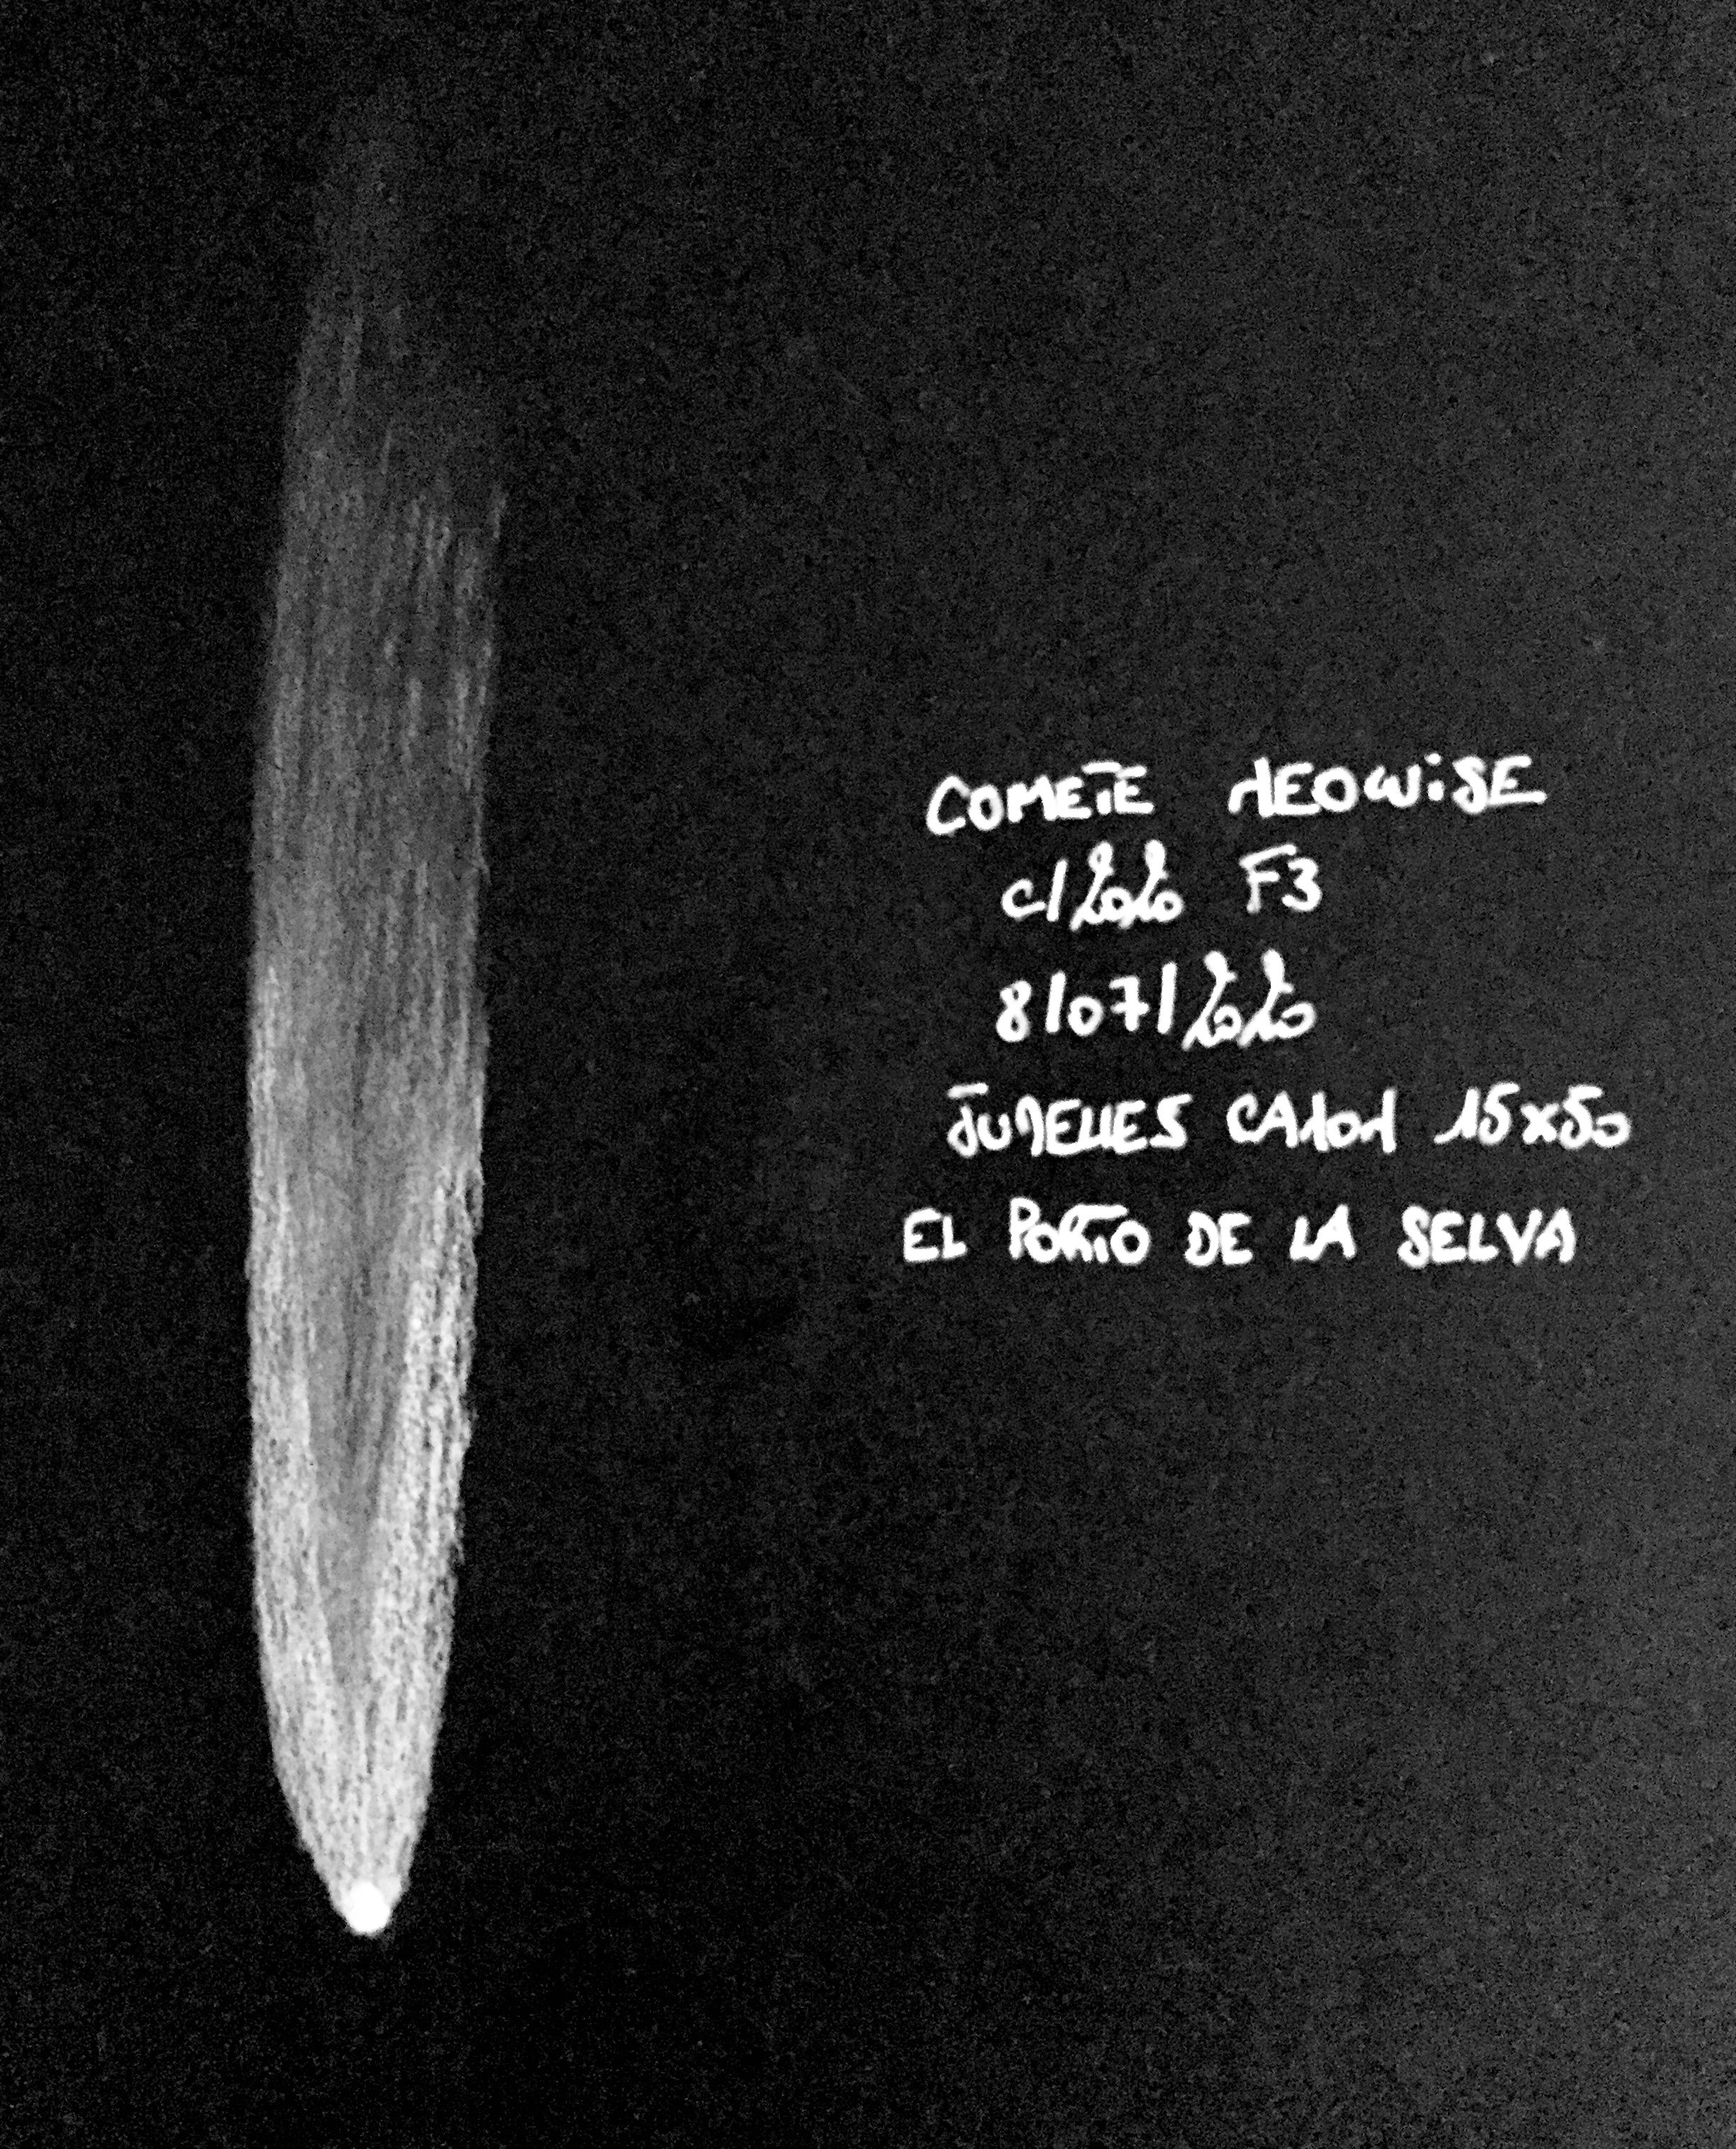 COMETE NEOWISE
C/2020 F3
8/07/2020
JUMELLES CANON 15x50
EL PORTO DE LA SELVA